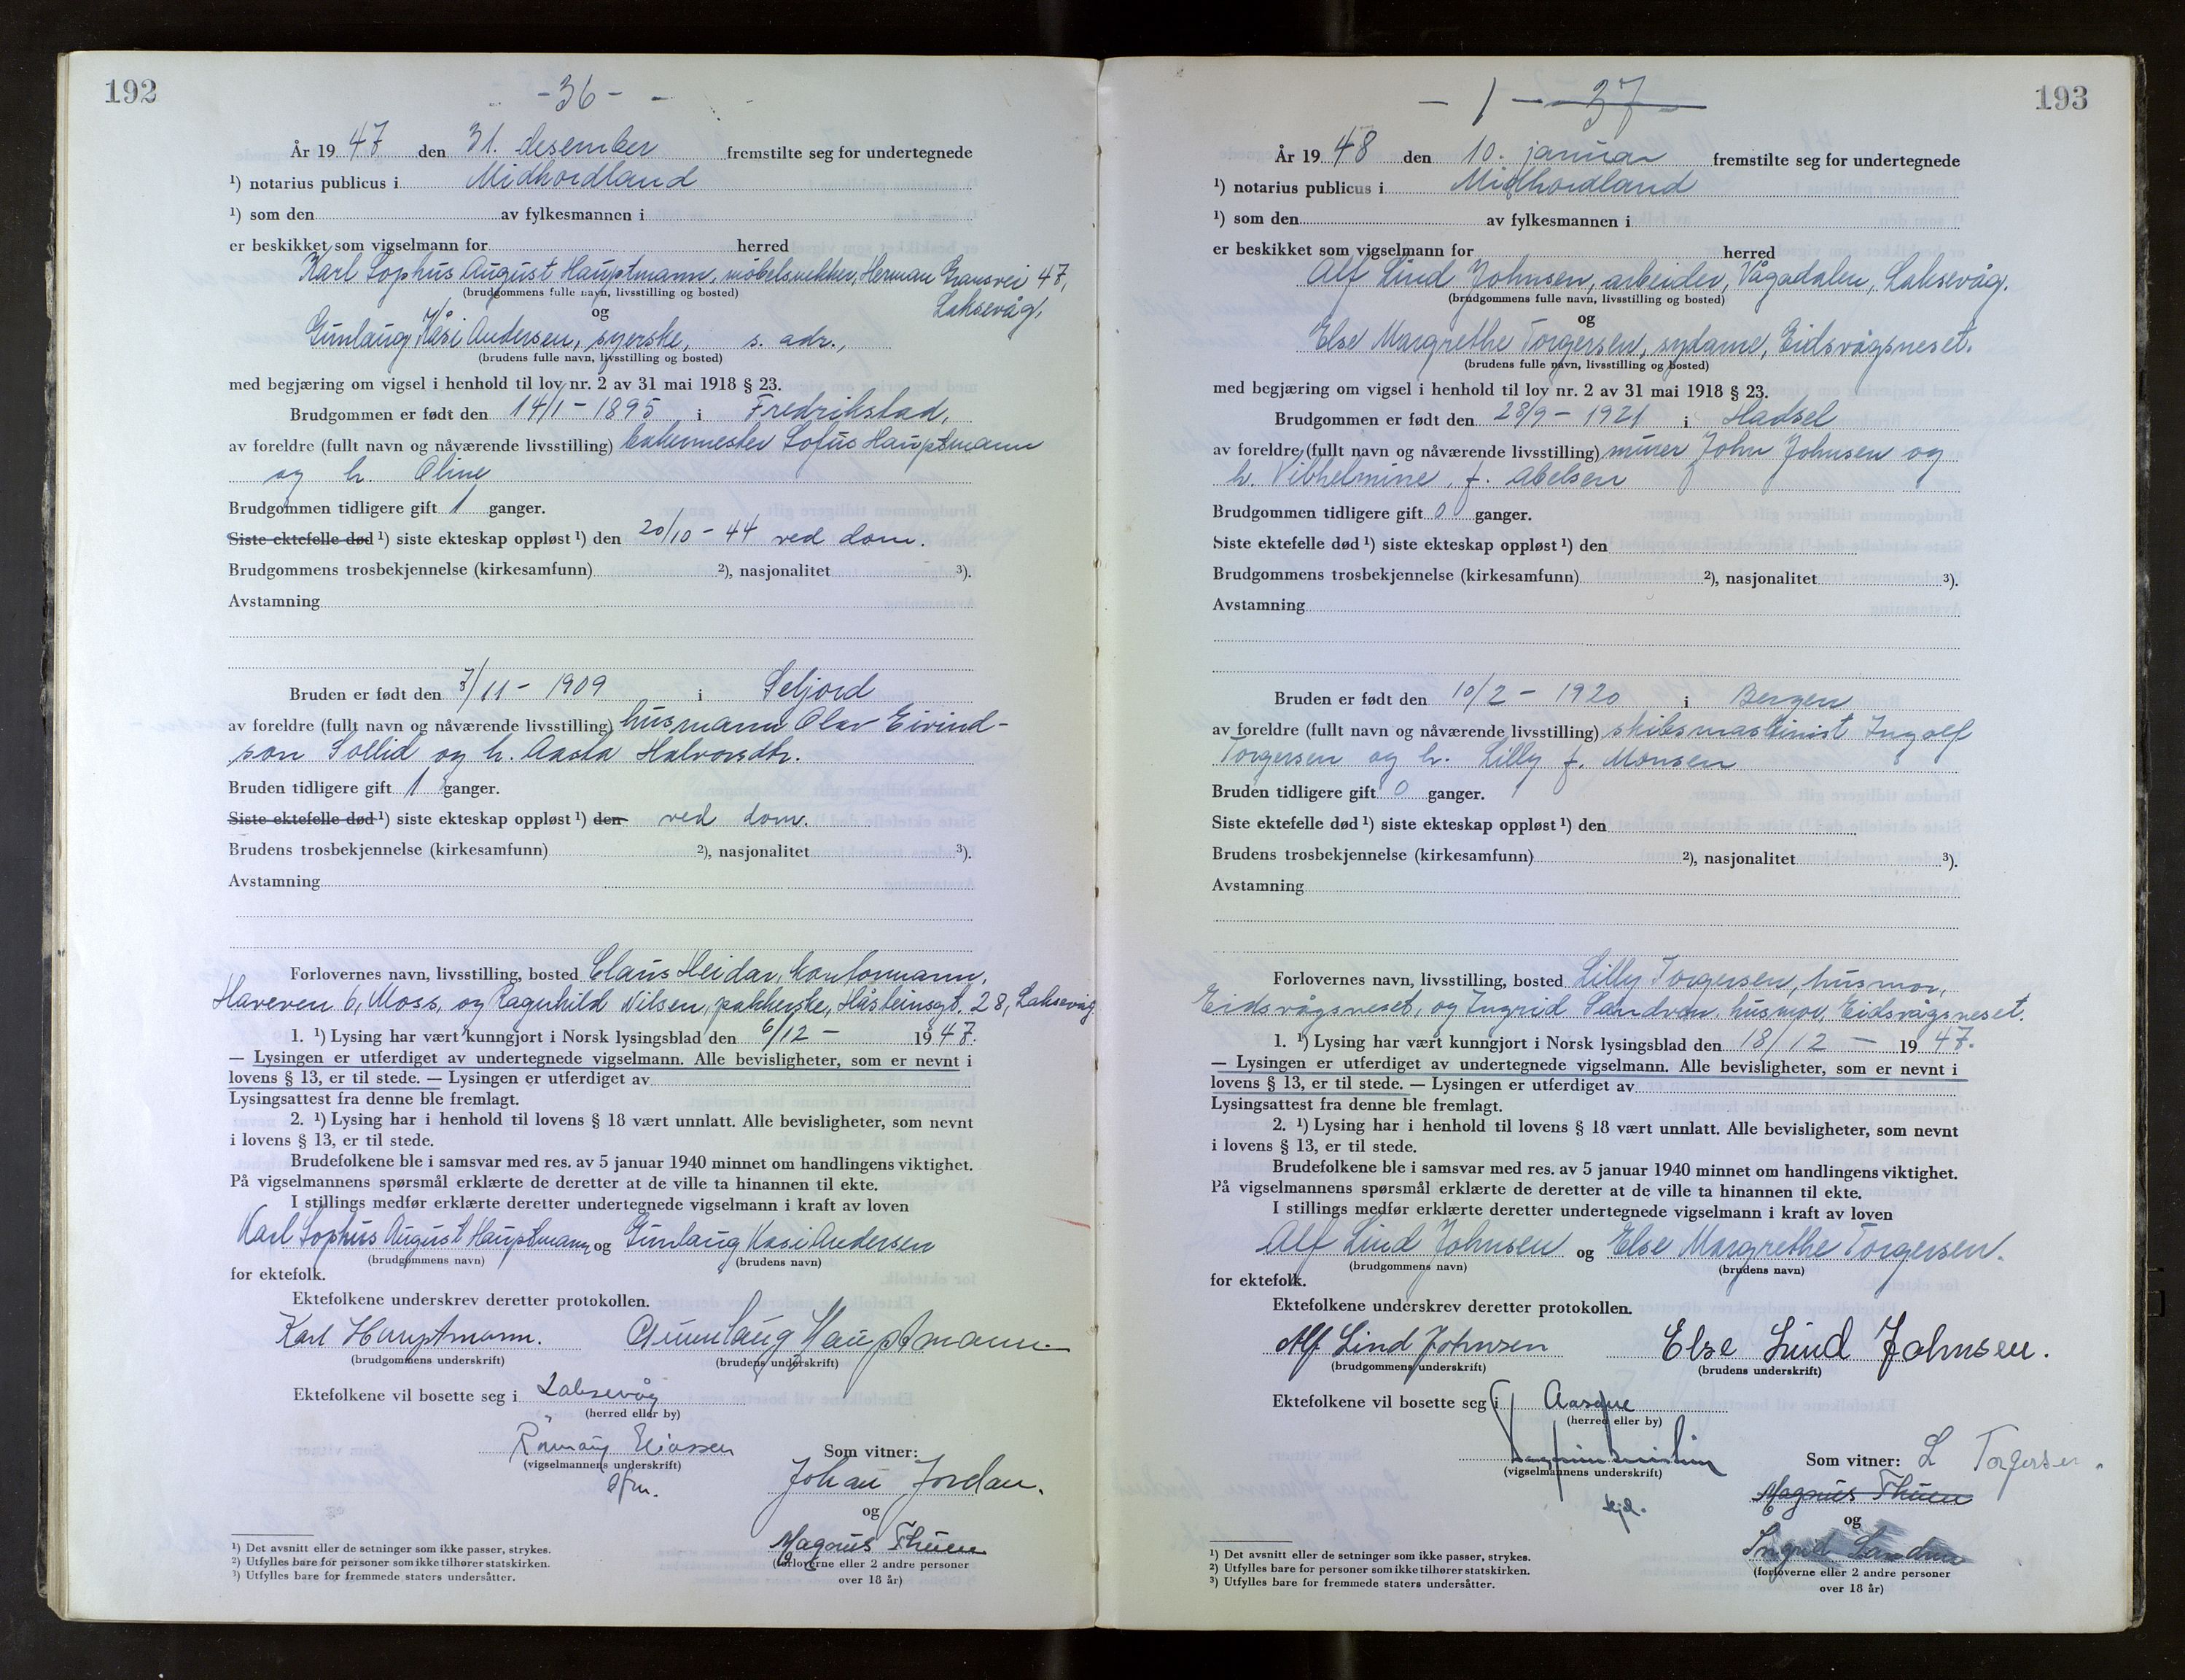 192
- 36 -
År 19 47 den 31. desember fremstilte seg for undertegnede
¹) notarius publicus i Midhordland
¹) som den av fylkesmannen i
er beskikket som vigselmann for herred
Karl Sophus August Hauptmann, møbelsnekker, Herman Gransvei 47,
(brudgommens fulle navn, livsstilling og bosted)
Laksevåg,
og
Gunlaug Kåsi Andersen, syerske, s. adr.,
(brudens fulle navn, livsstilling og bosted)
med begjæring om vigsel i henhold til lov nr. 2 av 31 mai 1918 § 23.
Brudgommen er født den 14/1 - 1895 i Fredrikstad,
av foreldre (fullt navn og nåværende livsstilling) bakermester Sofus Hauptmann
og h. Oline
Brudgommen tidligere gift 1 ganger.
Siste ektefelle død ¹) siste ekteskap oppløst ¹) den 20/10 - 44 ved dom.
Brudgommens trosbekjennelse (kirkesamfunn) ²), nasjonalitet ³).
Avstamning
Bruden er født den 7/11 - 1909 i Seljord
av foreldre (fullt navn og nåværende livsstilling) husmann Olav Eivind-
son Sollid og h. Aasta Halvorsdtr.
Bruden tidligere gift 1 ganger.
Siste ektefelle død ¹) siste ekteskap oppløst ¹) den ved dom.
Brudens trosbekjennelse (kirkesamfunn) ²), nasjonalitet ³).
Avstamning
Forlovernes navn, livsstilling, bosted Claus Heidar, kontormann,
Haveven 6, Moss, og Ragnhild Nilsen, pakkerske, Håsteinsgt. 28, Laksevåg
1. ¹) Lysing har vært kunngjort i Norsk lysingsblad den 6/12 - 1947.
— Lysingen er utferdiget av undertegnede vigselmann. Alle bevisligheter, som er nevnt i
lovens § 13, er til stede. — Lysingen er utferdiget av
Lysingsattest fra denne ble fremlagt.
2. ¹) Lysing har i henhold til lovens § 18 vært unnlatt. Alle bevisligheter, som nevnt
i lovens § 13, er til stede.
Brudefolkene ble i samsvar med res. av 5 januar 1940 minnet om handlingens viktighet.
På vigselmannens spørsmål erklærte de deretter at de ville ta hinannen til ekte.
I stillings medfør erklærte deretter undertegnede vigselmann i kraft av loven
Karl Sophus August Hauptmann og Gunlaug Kasi Andersen
(brudgommens navn) (brudens navn)
for ektefolk.
Ektefolkene underskrev deretter protokollen.
Karl Hauptmann. Gunnlaug Hauptmann.
(brudgommens underskrift) (brudens underskrift)
Ektefolkene vil bosette seg i Laksevåg
(herred eller by)
Eliassen Som vitner:
(vigselmannens underskrift)
Johan Jordan.
og
Magnus Thuen
(forloverne eller 2 andre personer
over 18 år)
¹) Det avsnitt eller de setninger som ikke passer, strykes.
²) Utfylles bare for personer som ikke tilhører statskirken.
³) Utfylles bare for fremmede staters undersåtter.
193
- 1 - 37
År 19 48 den 10. januar fremstilte seg for undertegnede
¹) notarius publicus i Midhordland
¹) som den av fylkesmannen i
er beskikket som vigselmann for herred
Alf Lind Johnsen, arbeider, Vågadalen, Laksevåg.
(brudgommens fulle navn, livsstilling og bosted)
og
Else Margrethe Torgersen, sydame, Eidsvågsneset.
(brudens fulle navn, livsstilling og bosted)
med begjæring om vigsel i henhold til lov nr. 2 av 31 mai 1918 § 23.
Brudgommen er født den 28/9 - 1921 i Hadsel
av foreldre (fullt navn og nåværende livsstilling) murer John Johnsen og
h. Vilhelmine, f. Abelsen
Brudgommen tidligere gift 0 ganger.
Siste ektefelle død ¹) siste ekteskap oppløst ¹) den
Brudgommens trosbekjennelse (kirkesamfunn) ²), nasjonalitet ³).
Avstamning
Bruden er født den 10/2 - 1920 i Bergen
av foreldre (fullt navn og nåværende livsstilling) skibsmaskinist Ingolf
Torgersen og h. Lilly f. Monsen
Bruden tidligere gift 0 ganger.
Siste ektefelle død ¹) siste ekteskap oppløst ¹) den
Brudens trosbekjennelse (kirkesamfunn) ²), nasjonalitet ³).
Avstamning
Forlovernes navn, livsstilling, bosted Lilly Torgersen, husmor,
Eidsvågsneset, og Ingrid Sandven, husmor, Eidsvågsneset.
1. ¹) Lysing har vært kunngjort i Norsk lysingsblad den 18/12 - 1947.
— Lysingen er utferdiget av undertegnede vigselmann. Alle bevisligheter, som er nevnt i
lovens § 13, er til stede. — Lysingen er utferdiget av
Lysingsattest fra denne ble fremlagt.
2. ¹) Lysing har i henhold til lovens § 18 vært unnlatt. Alle bevisligheter, som nevnt
i lovens § 13, er til stede.
Brudefolkene ble i samsvar med res. av 5 januar 1940 minnet om handlingens viktighet.
På vigselmannens spørsmål erklærte de deretter at de ville ta hinannen til ekte.
I stillings medfør erklærte deretter undertegnede vigselmann i kraft av loven
Alf Lind Johnsen og Else Margrethe Torgersen.
(brudgommens navn) (brudens navn)
for ektefolk.
Ektefolkene underskrev deretter protokollen.
Alf Lind Johnsen Else Lind Johnsen.
(brudgommens underskrift) (brudens underskrift)
Ektefolkene vil bosette seg i
(herred eller by)
Som vitner: L Torgersen.
(vigselmannens underskrift)
Magnus Thuen
og
Ingrid Sandven
(forloverne eller 2 andre personer
over 18 år)
¹) Det avsnitt eller de setninger som ikke passer, strykes.
²) Utfylles bare for personer som ikke tilhører statskirken.
³) Utfylles bare for fremmede staters undersåtter.